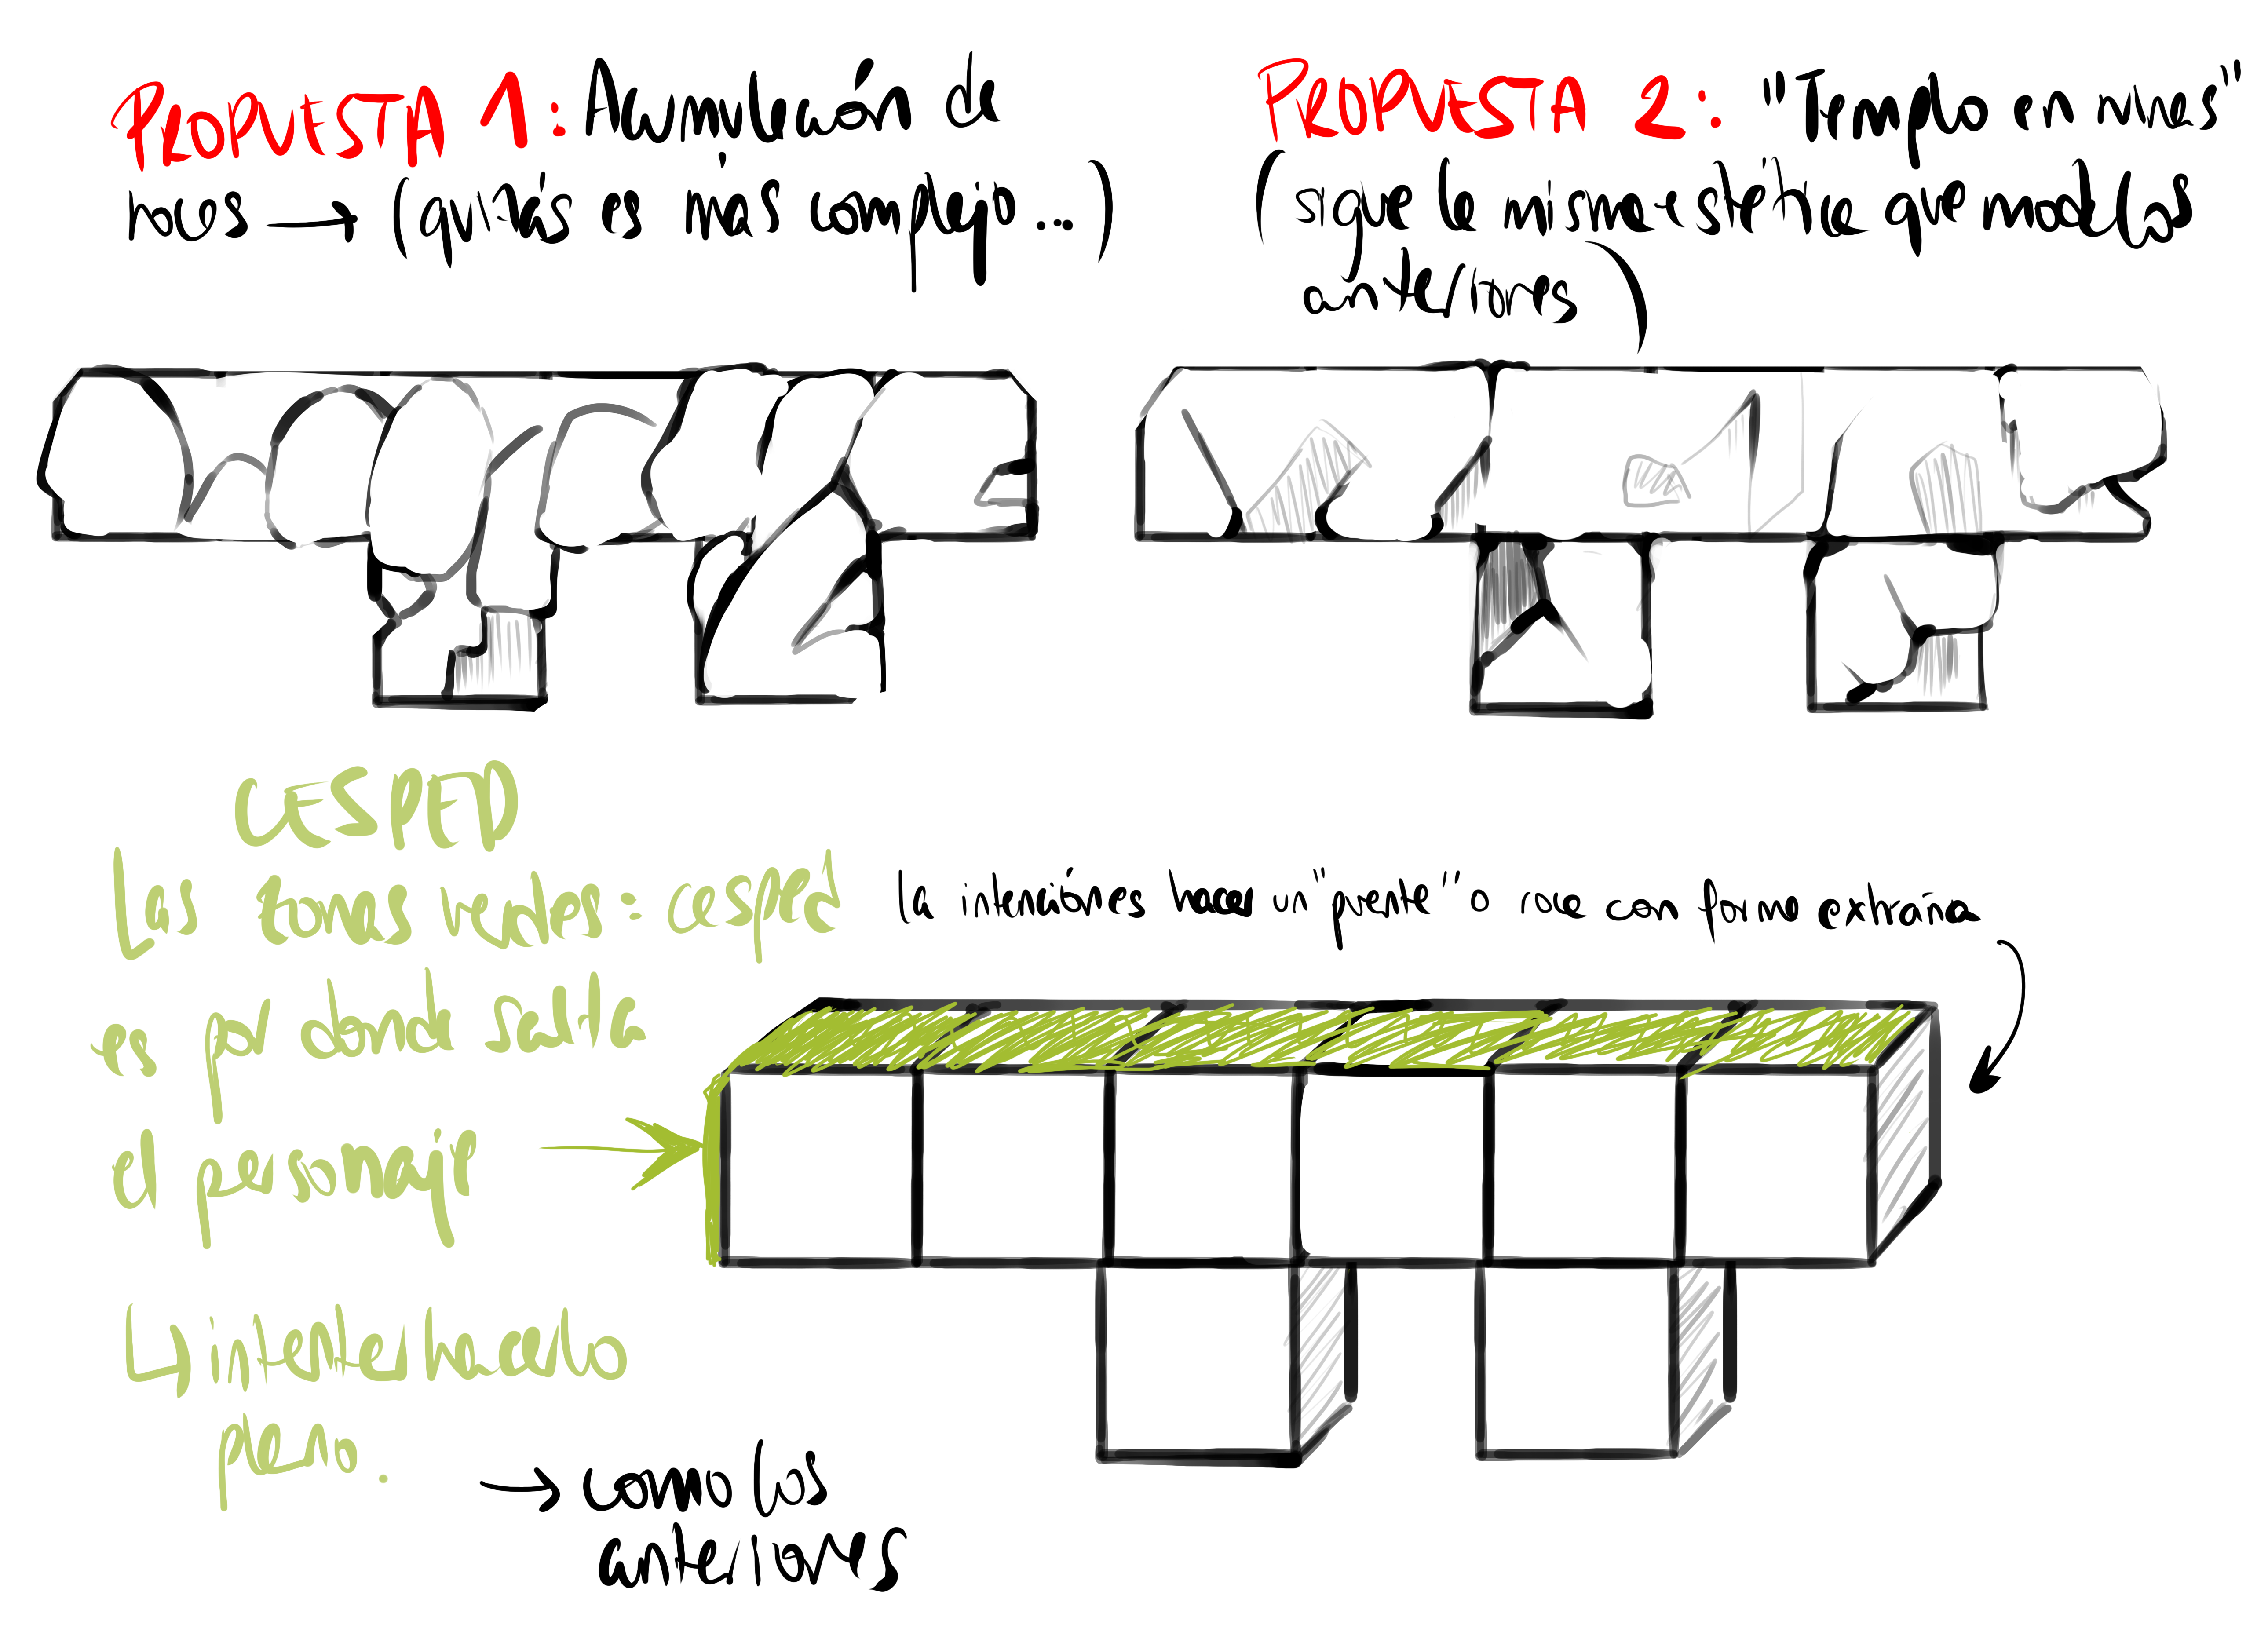 PROPUESTA 1: Acumulación de
rocas → (quizás es más complejo ...)
PROPUESTA 2: "Templo en ruinas"
(sigue la misma estética que modelos
anteriores)
CESPED
Las zonas verdes: cesped
es por donde salta
el personaje
↳ intenta hacerlo
plano.
→ como los
anteriores
la intención es hacer un "puente" o roca con forma extraña